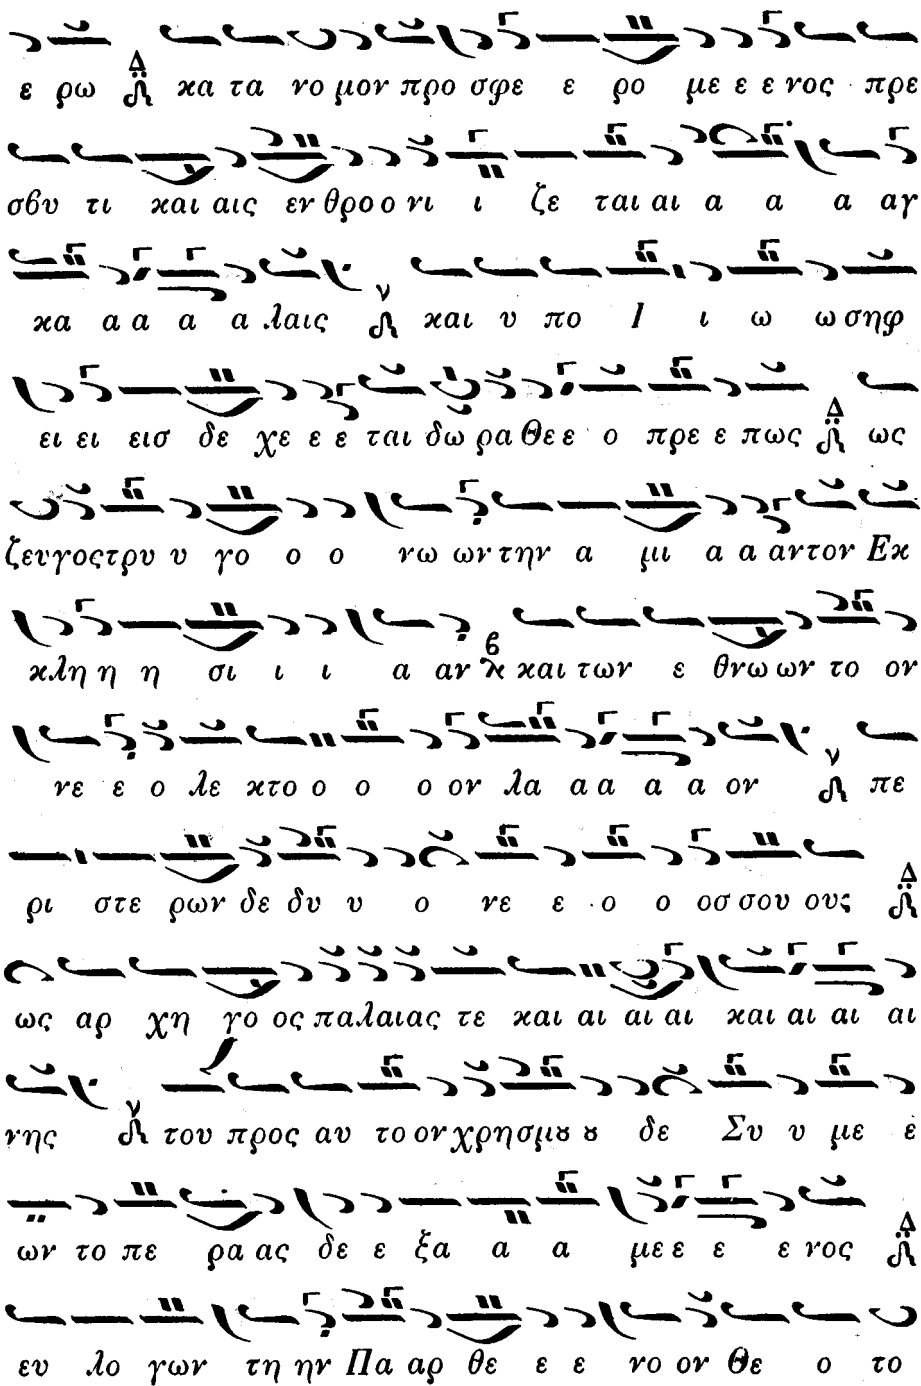 ε ρω Δ κα τα νο μον προ σφε ε ρο με ε ε νος πρε
σβυ τι και αις εν θρο ο νι ι ζε ται αι α α α αγ
κα α α α α λαις ν και υ πο Ι ι ω ω σηφ
ει ει εισ δε χε ε ε ται δω ρα Θε ε ο πρε ε πως Δ ως
ζευγος τρυ υ γο ο ο νω ων την α μι α α αντον Εκ
κλη η η σι ι ι α αν β και των ε θνω ων το ον
νε ε ο λε κτο ο ο ο ον λα α α α α ον ν πε
ρι στε ρων δε δυ υ ο νε ε ο ο οσ σου ους Δ
ως αρ χη γο ος παλαιας τε και αι αι αι και αι αι αι
νης ν του προς αυ το ον χρησμȣ ȣ δε Συ υ με ε
ων το πε ρα ας δε ε ξα α α με ε ε ε νος Δ
ευ λο γων τη ην Πα αρ θε ε ε νο ον Θε ο το